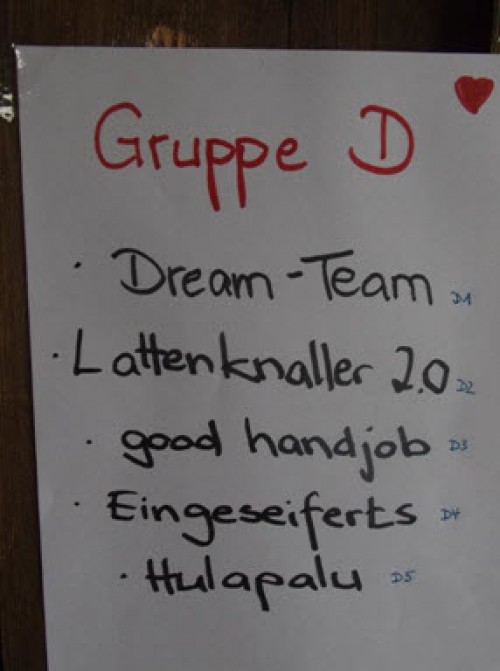 Gruppe D
· Dream-Team D1
· Lattenknaller 2.0 D2
· good handjob D3
· Eingeseiferts D4
· Hulapalu D5